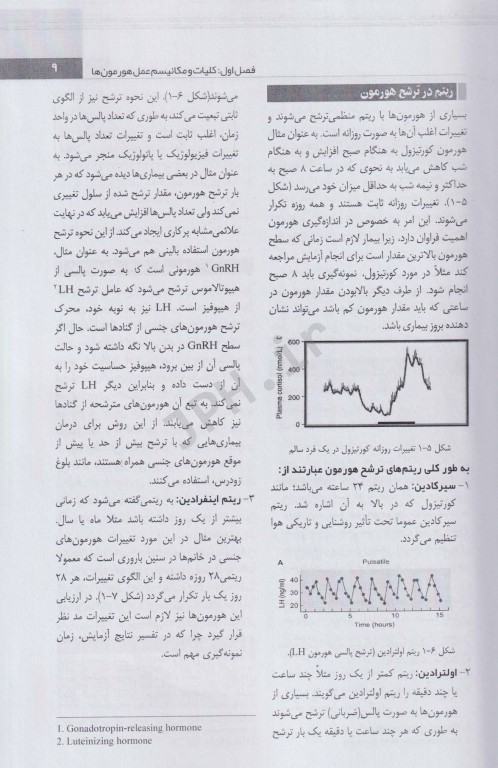 فصل اول: کلیات و مکانیسم عمل هورمون‌ها
۹
ریتم در ترشح هورمون
بسیاری از هورمون‌ها با ریتم منظمی‌ترشح می‌شوند و
تغییرات اغلب آن‌ها به صورت روزانه است. به عنوان مثال
هورمون کورتیزول به هنگام صبح افزایش و به هنگام
شب کاهش می‌یابد به نحوی که در ساعت ۸ صبح به
حداکثر و نیمه شب به حداقل میزان خود می‌رسد (شکل
۵-۱). تغییرات روزانه ثابت هستند و همه روزه تکرار
می‌شوند. این امر به خصوص در اندازه‌گیری هورمون
اهمیت فراوان دارد، زیرا بیمار لازم است زمانی که سطح
هورمون بالاترین مقدار است برای انجام آزمایش مراجعه
کند مثلاً در مورد کورتیزول، نمونه‌گیری باید ۸ صبح
انجام شود. از طرف دیگر بالابودن مقدار هورمون در
ساعتی که باید مقدار هورمون کم باشد می‌تواند نشان
دهنده بروز بیماری باشد.
Plasma cortisol (nmol/L)
600
400
200
0
شکل ۵-۱ تغییرات روزانه کورتیزول در یک فرد سالم
به طور کلی ریتم‌های ترشح هورمون عبارتند از:
۱- سیرکادین: همان ریتم ۲۴ ساعته می‌باشد؛ مانند
کورتیزول که در بالا به آن اشاره شد. ریتم
سیرکادین عموما تحت تأثیر روشنایی و تاریکی هوا
تنظیم می‌گردد.
A
Pulsatile
LH (ng/ml)
40
30
20
0 5 10 15
Time (hours)
شکل ۶-۱ ریتم اولترادین (ترشح پالسی هورمون LH).
۲- اولترادین: ریتم کمتر از یک روز مثلاً چند ساعت
یا چند دقیقه را ریتم اولترادین می‌گویند. بسیاری از
هورمون‌ها به صورت پالس(ضربانی) ترشح می‌شوند
به طوری که هر چند ساعت یا دقیقه یک بار ترشح
می‌شوند(شکل ۶-۱). این نحوه ترشح نیز از الگوی
ثابتی تبعیت می‌کند، به طوری که تعداد پالس‌ها در واحد
زمان، اغلب ثابت است و تغییرات تعداد پالس‌ها به
تغییرات فیزیولوژیک یا پاتولوژیک منجر می‌شود. به
عنوان مثال در بعضی بیماری‌ها دیده می‌شود که در هر
بار ترشح هورمون، مقدار ترشح شده از سلول تغییری
نمی‌کند ولی تعداد پالس‌ها افزایش می‌یابد که در نهایت
علائمی‌مشابه پرکاری ایجاد می‌کند. از این نحوه ترشح
هورمون استفاده بالینی هم می‌شود. به عنوان مثال،
GnRH۱ هورمونی است که به صورت پالسی از
هیپوتالاموس ترشح می‌شود که عامل ترشح LH۲
از هیپوفیز است. LH نیز به نوبه خود، محرک
ترشح هورمون‌های جنسی از گنادها است. حال اگر
سطح GnRH در بدن بالا نگه داشته شود و حالت
پالسی آن از بین برود، هیپوفیز حساسیت خود را به
آن از دست داده و بنابراین دیگر LH ترشح
نمی‌کند. به تبع آن هورمون‌های مترشحه از گنادها
نیز کاهش می‌یابند. از این روش برای درمان
بیماری‌هایی که با ترشح بیش از حد یا پیش از
موقع هورمون‌های جنسی همراه هستند، مانند بلوغ
زودرس، استفاده می‌کنند.
۳- ریتم اینفرادین: به ریتمی‌گفته می‌شود که زمانی
بیشتر از یک روز داشته باشد مثلا ماه یا سال.
بهترین مثال در این مورد تغییرات هورمون‌های
جنسی در خانم‌ها در سنین باروری است که معمولا
ریتمی۲۸ روزه داشته و این الگوی تغییرات، هر ۲۸
روز یک بار تکرار می‌گردد (شکل ۷-۱). در ارزیابی
این هورمون‌ها نیز لازم است این تغییرات مد نظر
قرار گیرد چرا که در تفسیر نتایج آزمایش، زمان
نمونه‌گیری مهم است.
1. Gonadotropin-releasing hormone
2. Luteinizing hormone